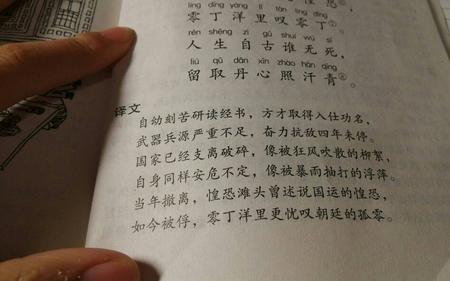 惶恐，
líng dīng yáng lǐ tàn líng dīng
零丁洋里叹零丁。
rén shēng zì gǔ shuí wú sǐ
人生自古谁无死，
liú qǔ dān xīn zhào hàn qīng
留取丹心照汗青。
译文
自幼刻苦研读经书，方才取得入仕功名，
武器兵源严重不足，奋力抗敌四年未停。
国家已经支离破碎，像被狂风吹散的柳絮，
自身同样安危不定，像被暴雨抽打的浮萍。
当年撤离，惶恐滩头曾述说国运的惶恐，
如今被俘，零丁洋里更忧叹朝廷的孤零。